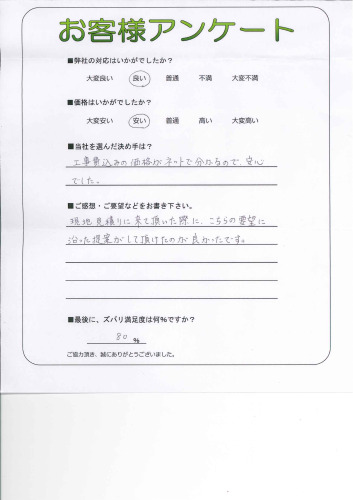 お客様アンケート
■弊社の対応はいかがでしたか？
大変良い 良い 普通 不満 大変不満
■価格はいかがでしたか？
大変安い 安い 普通 高い 大変高い
■当社を選んだ決め手は？
工事費込みの価格がネットで分かるので、安心
でした。
■ご感想・ご要望などをお書き下さい。
現地見積りに来て頂いた際に、こちらの要望に
沿った提案がして頂けたのが良かったです。
■最後に、ズバリ満足度は何％ですか？
80 ％
ご協力頂き、誠にありがとうございました。